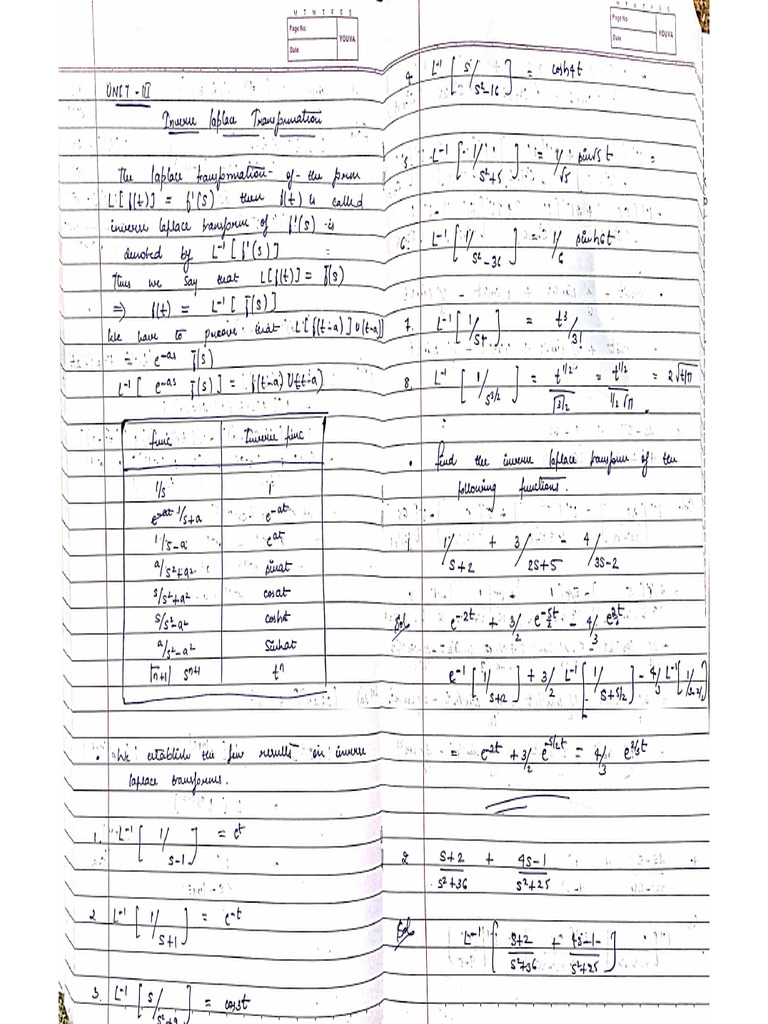 M T W T F S S
Page No
Date
YOUVA
UNIT - III
Inverse Laplace Transformation
The Laplace transformation of the form
L[f(t)] = f'(s) then f(t) is called
inverse laplace transform of f'(s) is
denoted by L⁻¹[f'(s)]
Thus we say that L[f(t)] = f̄(s)
⇒ f(t) = L⁻¹[f̄(s)]
We have to prove that L[f(t-a)] U(t-a)]
= e^-as f̄(s)
L⁻¹[e^-as f̄(s)] = f(t-a) U(t-a)
func Inverse func
1/s 1
1/s+a e^-at
1/s-a e^at
a/s²+a² sinat
s/s²+a² cosat
s/s²-a² coshat
a/s²-a² sinhat
Γn+1/s^n+1 t^n
• We establish the few results in inverse
laplace transforms.
1. L⁻¹[1/s-1] = e^t
2 L⁻¹[1/s+1] = e^-t
3. L⁻¹[s/s²+9] = cos3t
M T W T F S S
Page No
Date
YOUVA
4. L⁻¹[s/s²-16] = cosh4t
5. L⁻¹[1/s²+5] = 1/√5 sin√5 t
6. L⁻¹[1/s²-36] = 1/6 sinh6t
7. L⁻¹[1/s⁴] = t³/3!
8. L⁻¹[1/s^3/2] = t^1/2/Γ3/2 = t^1/2/1/2 √π = 2√t/π
• find the inverse laplace transform of the
following functions.
1. 1/s+2 + 3/2s+5 - 4/3s-2
Sol e^-2t + 3/2 e^-5t/2 - 4/3 e^2/3t
e⁻¹[1/s+2] + 3/2 L⁻¹[1/s+5/2] - 4/3 L⁻¹[1/s-2/3]
= e^-2t + 3/2 e^-5/2t = 4/3 e^2/3t
2 s+2/s²+36 + 4s-1/s²+25
Sol L⁻¹[s+2/s²+36 + 4s-1/s²+25]